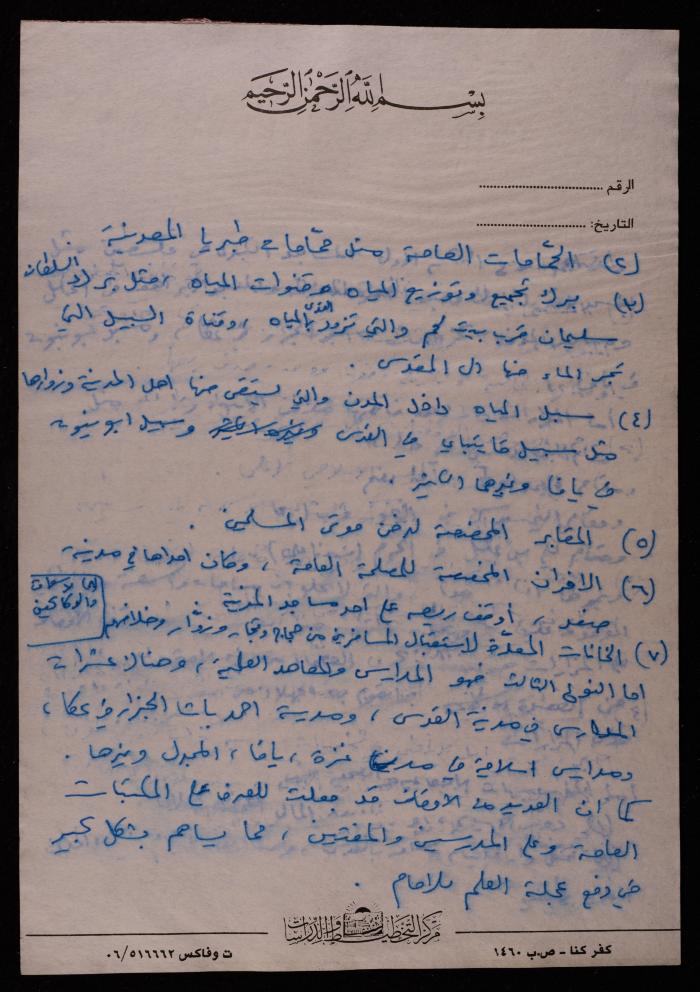 بسم الله الرحمن الرحيم
الرقم
التاريخ:
(٢) الحمّامات العامة مثل حمّامات طبريا المعدنية .
(٣) برك تجميع وتوزيع المياه وقنوات المياه ، مثل برك السلطان
سليمان قرب بيت لحم والتي تزود بالمياه ، وقناة السبيل التي
تجر الماء منها الى المقدس .
(٤) سبل المياه داخل المدن والتي يستقى منها اهل المدينة وزوارها
مثل سبيل قايتباي في القدس وسبيل ابو نبوت
في يافا وغيرها الكثير .
(٥) المقابر المخصصة لدفن موتى المسلمين .
(٦) الافران المخصصة للمصلحة العامة ، وكان احداها في مدينة
صفد ، أوقف ريعه على احد مساجد المدينة .
(٧) الخانات المعدّة لاستقبال المسافرين من حجاج وتجار وزوّار وخلافهم
اما النوع الثالث فهو المدارس والمعاهد العلمية ، وهناك عشرات
المدارس في مدينة القدس ، ومدرسة احمد باشا الجزار في عكا ،
ومدارس اسلامية في مدن غزة ، يافا ، المجدل وغيرها .
كما ان العديد من الأوقاف قد جعلت للصرف على المكتبات
العامة وعلى المدرسين والمفتيين ، مما يساهم بشكل كبير
في دفع عجلة العلم للامام .
مركز التخطيط والدراسات
كفر كنا - ص.ب ١٤٦٠
ت وفاكس ٠٦/٥١٦٦٦٢